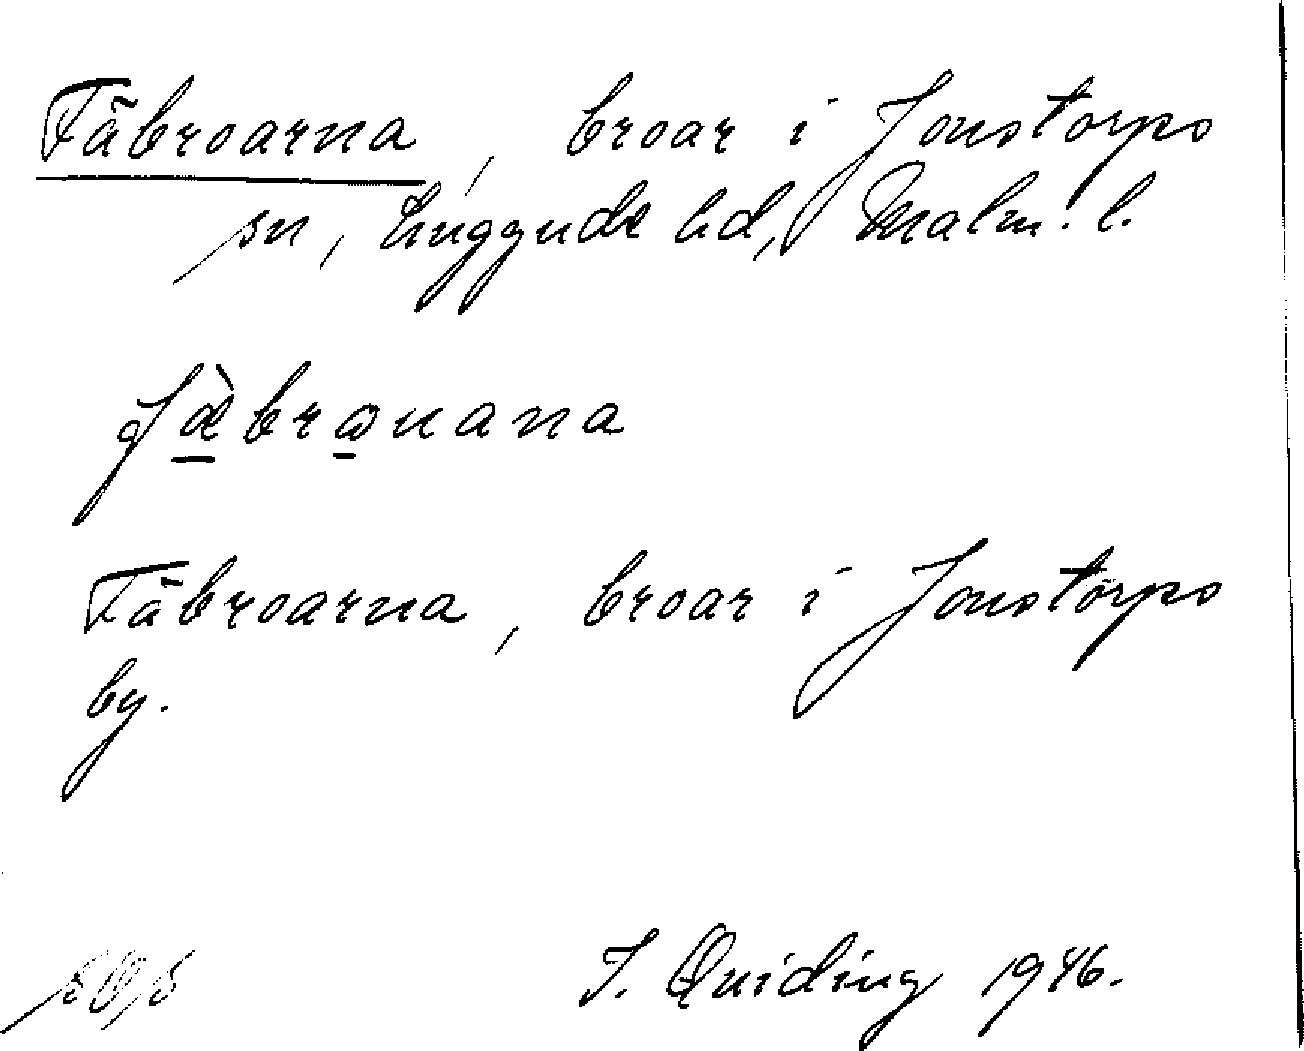 Fäbroarna, broar i Jonstorps
sn, Luggude hd, Malm. l.
fæ̀brọuana
Fäbroarna, broar i Jonstorps
by.
I. Quiding 1946.